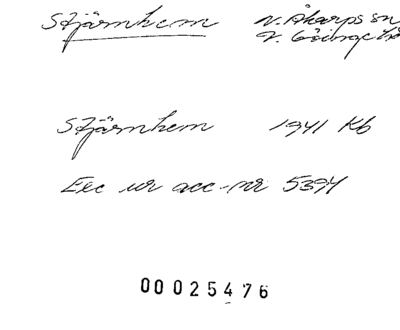 Stjärnhem N. Åkarps sn
V. Göinge hd
Stjärnhem 1941 Kb
Exc ur acc-nr 5394
00025476